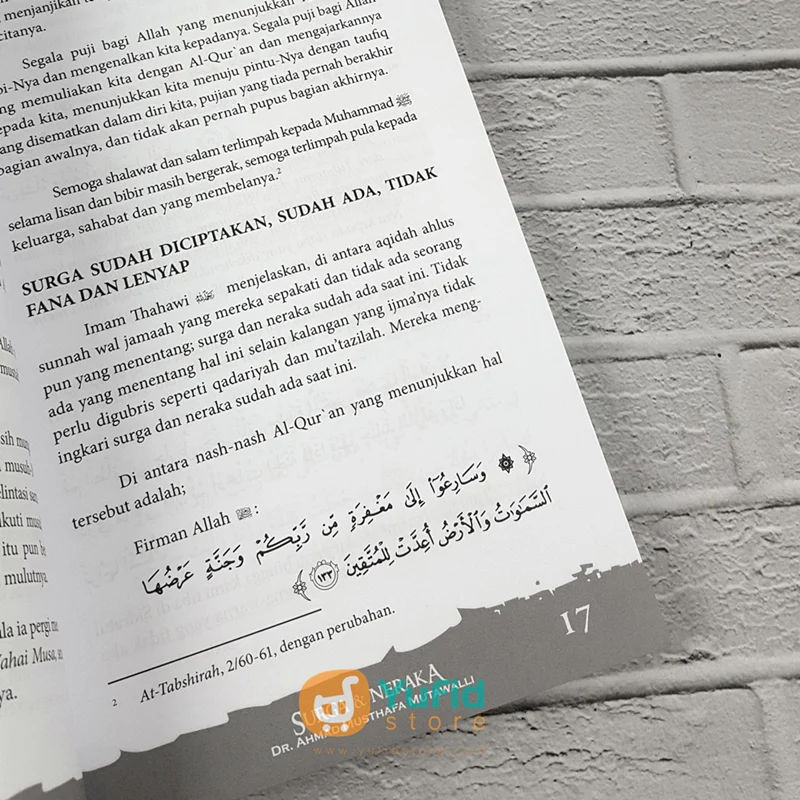 menjanjikan
citanya.
Segala puji bagi Allah yang menunjukkan
bi-Nya dan mengenalkan kita kepadanya. Segala puji bagi Allah
ng memuliakan kita dengan Al-Qur`an dan mengajarkannya
epada kita, menunjukkan kita menuju pintu-Nya dengan taufiq
ang disematkan dalam diri kita, pujian yang tiada pernah berakhir
bagian awalnya, dan tidak akan pernah pupus bagian akhirnya.
Semoga shalawat dan salam terlimpah kepada Muhammad ﷺ
selama lisan dan bibir masih bergerak, semoga terlimpah pula kepada
keluarga, sahabat dan yang membelanya.²
SURGA SUDAH DICIPTAKAN, SUDAH ADA, TIDAK
FANA DAN LENYAP
Imam Thahawi menjelaskan, di antara aqidah ahlus
sunnah wal jamaah yang mereka sepakati dan tidak ada seorang
pun yang menentang; surga dan neraka sudah ada saat ini. Tidak
ada yang menentang hal ini selain kalangan yang ijma'nya tidak
perlu digubris seperti qadariyah dan mu'tazilah. Mereka meng-
ingkari surga dan neraka sudah ada saat ini.
Di antara nash-nash Al-Qur`an yang menunjukkan hal
tersebut adalah;
Firman Allah :
۞ وَسَارِعُوٓا۟ إِلَىٰ مَغْفِرَةٍ مِّن رَّبِّكُمْ وَجَنَّةٍ عَرْضُهَا
ٱلسَّمَٰوَٰتُ وَٱلْأَرْضُ أُعِدَّتْ لِلْمُتَّقِينَ ١٣٣
2 At-Tabshirah, 2/60-61, dengan perubahan.
17
SURGA & NERAKA
DR. AHMAD MUSTHAFA MUTAWALLI
Yufid
store
Allah
sih
musuh
elintasi
kuti
itu pun
mulutnya
la ia pergi
Yahai Musa,
ya.